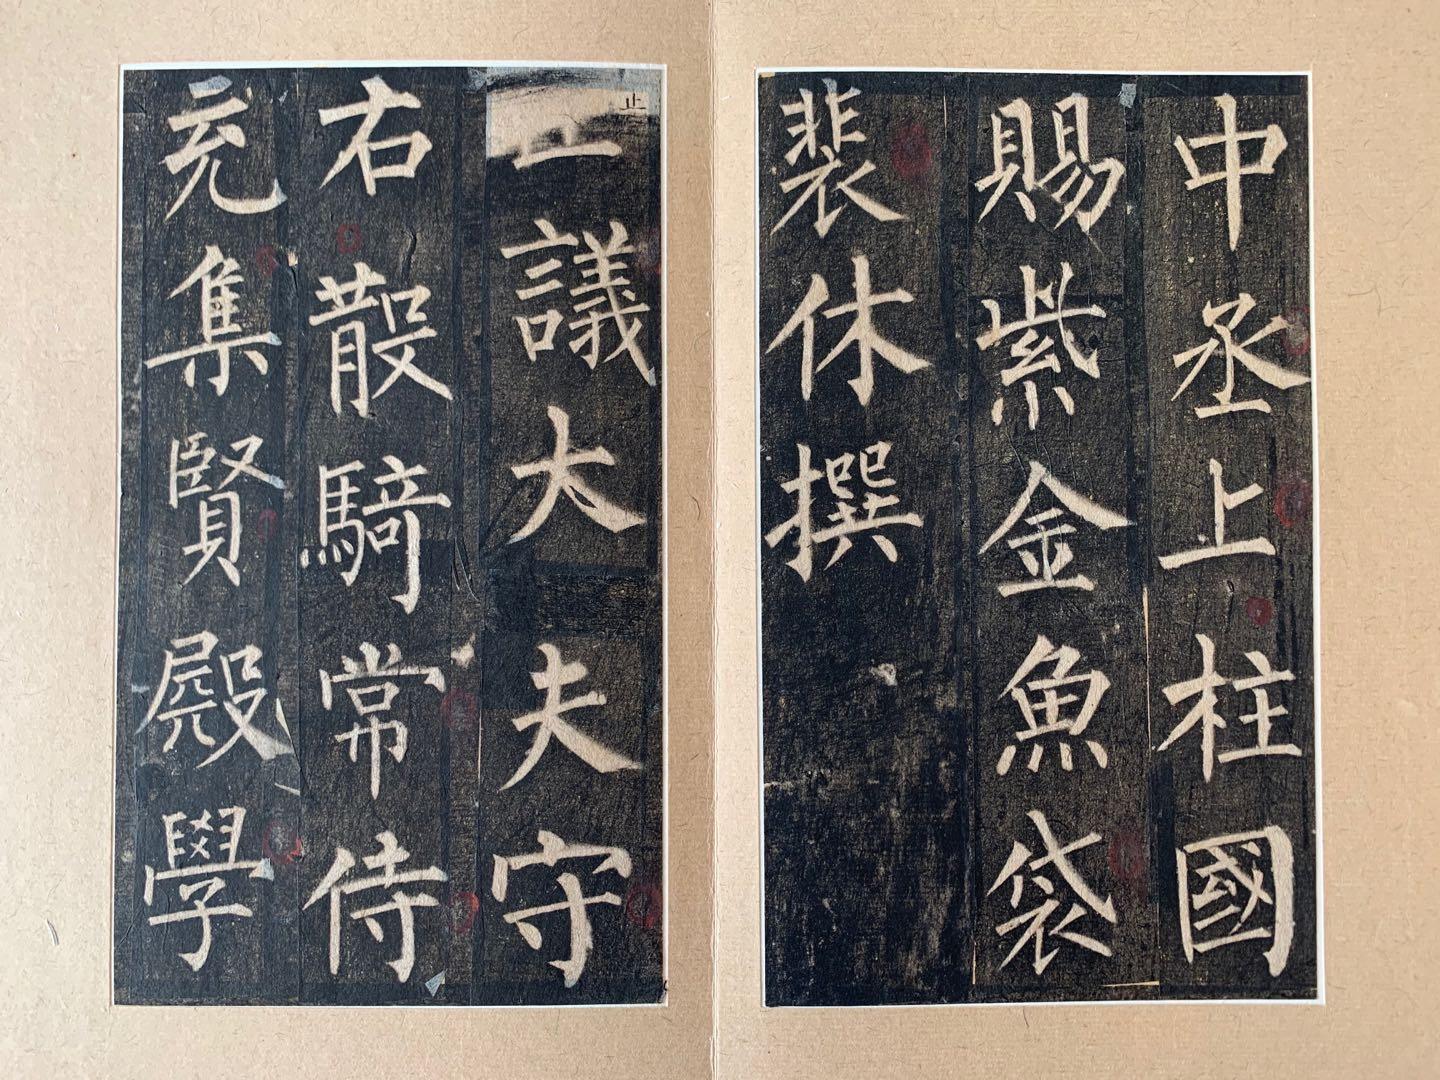 中丞上柱國
賜紫金魚袋
裴休撰
正議大夫守
右散騎常侍
充集賢殿學